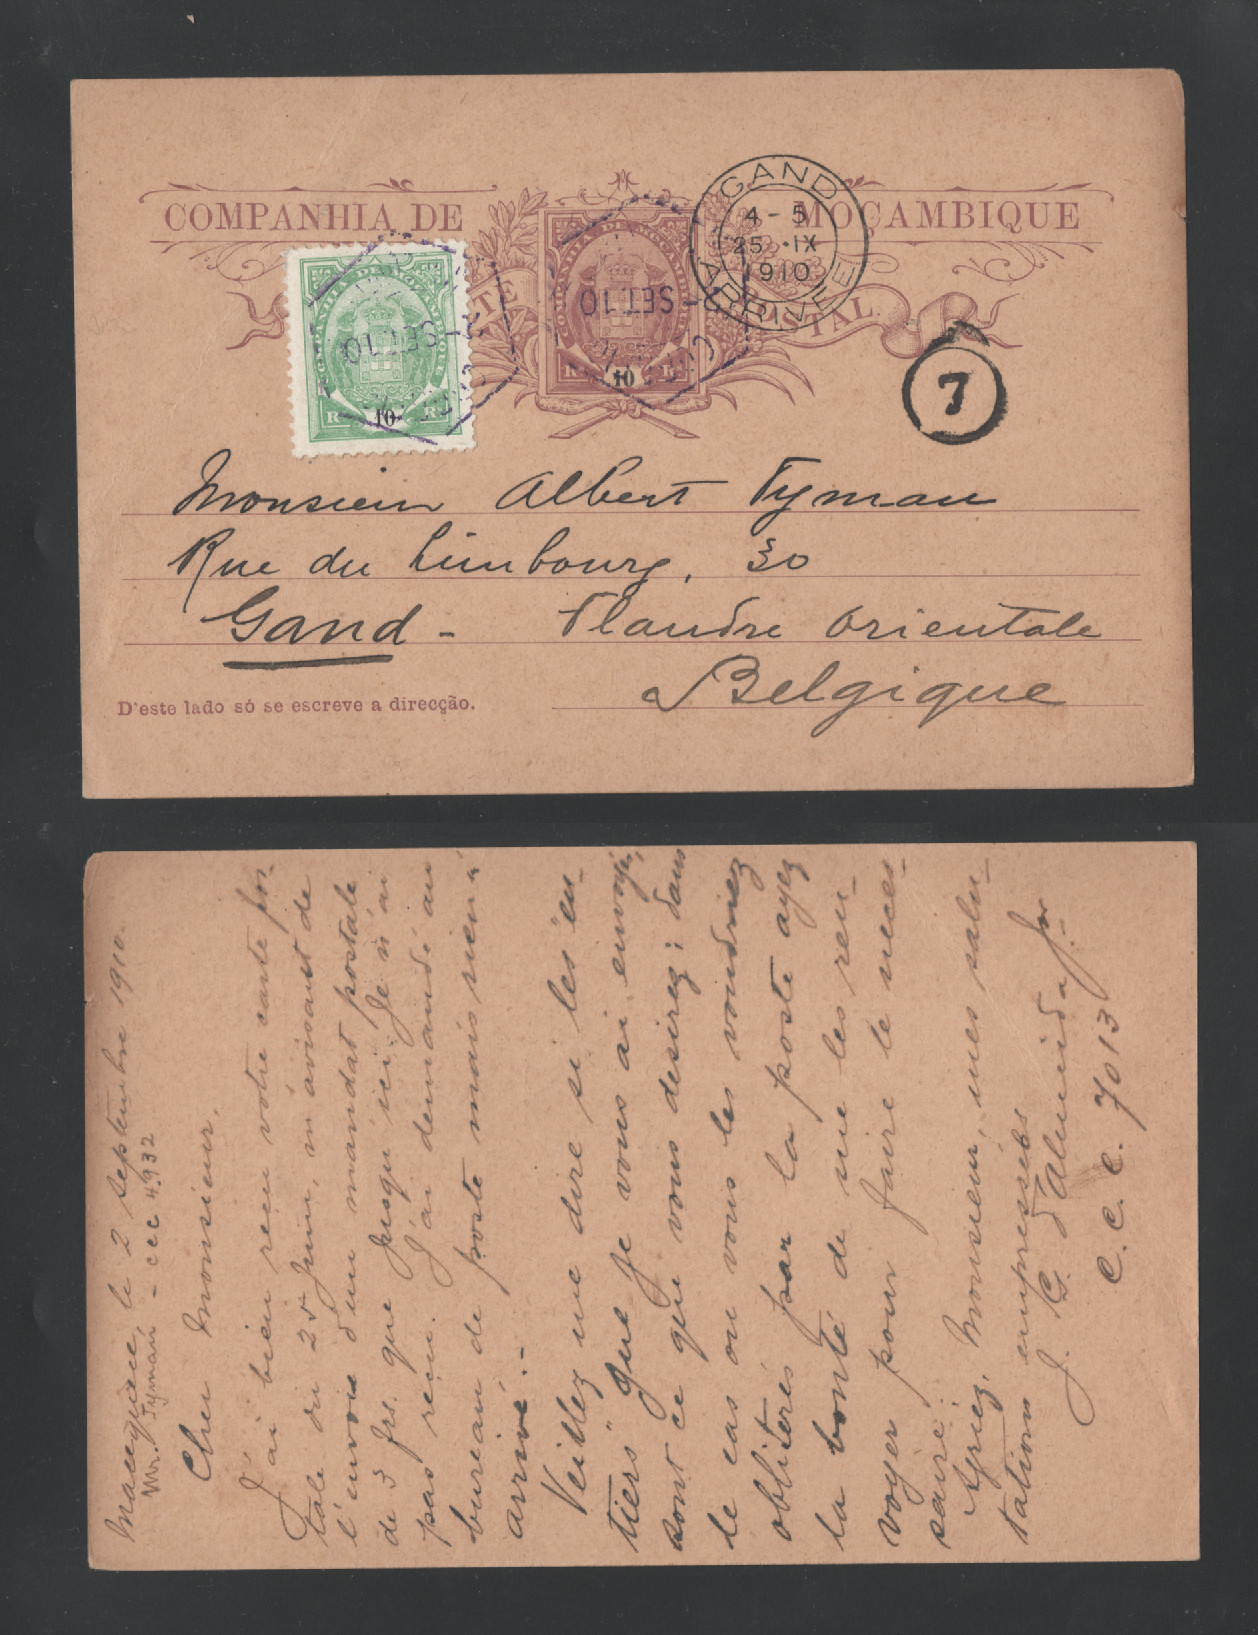 COMPANHIA DE MOÇAMBIQUE
BILHETE POSTAL
COMPANHIA DE MOÇAMBIQUE
R 10 R
COMPANHIA DE MOÇAMBIQUE
R 10 R
2 - SET. 10
2 - SET. 10
GAND
4 - 5
25 · IX
1910
ARRIVÉE
7
Monsieur Albert Tyman
Rue du Limbourg, 30
Gand - Flandre Orientale
Belgique
D'este lado só se escreve a direcção.
Macequece, le 2 septembre 1910.
Mr. Tyman - ccc 4932
Cher Monsieur,
J'ai bien reçu votre carte pos-
tale du 25 Juin, m'avisant de
l'envoie d'un mandat postale
de 3 frs. que jusqu'ici je n'ai
pas reçu. J'ai demandé au
bureau de poste mais rien n'a
arrivé. -
Veillez me dire si les "en-
tiers" que je vous ai envoyé,
sont ce que vous desirez; dans
le cas ou vous les voudriez
oblitérés par la poste ayez
la bonté de me les ren-
voyer pour faire le neces-
saire.
Agriez, Monsieur, mes salu-
tations empressées
J. G. d'Almeida Jor
C. C. C. 7013